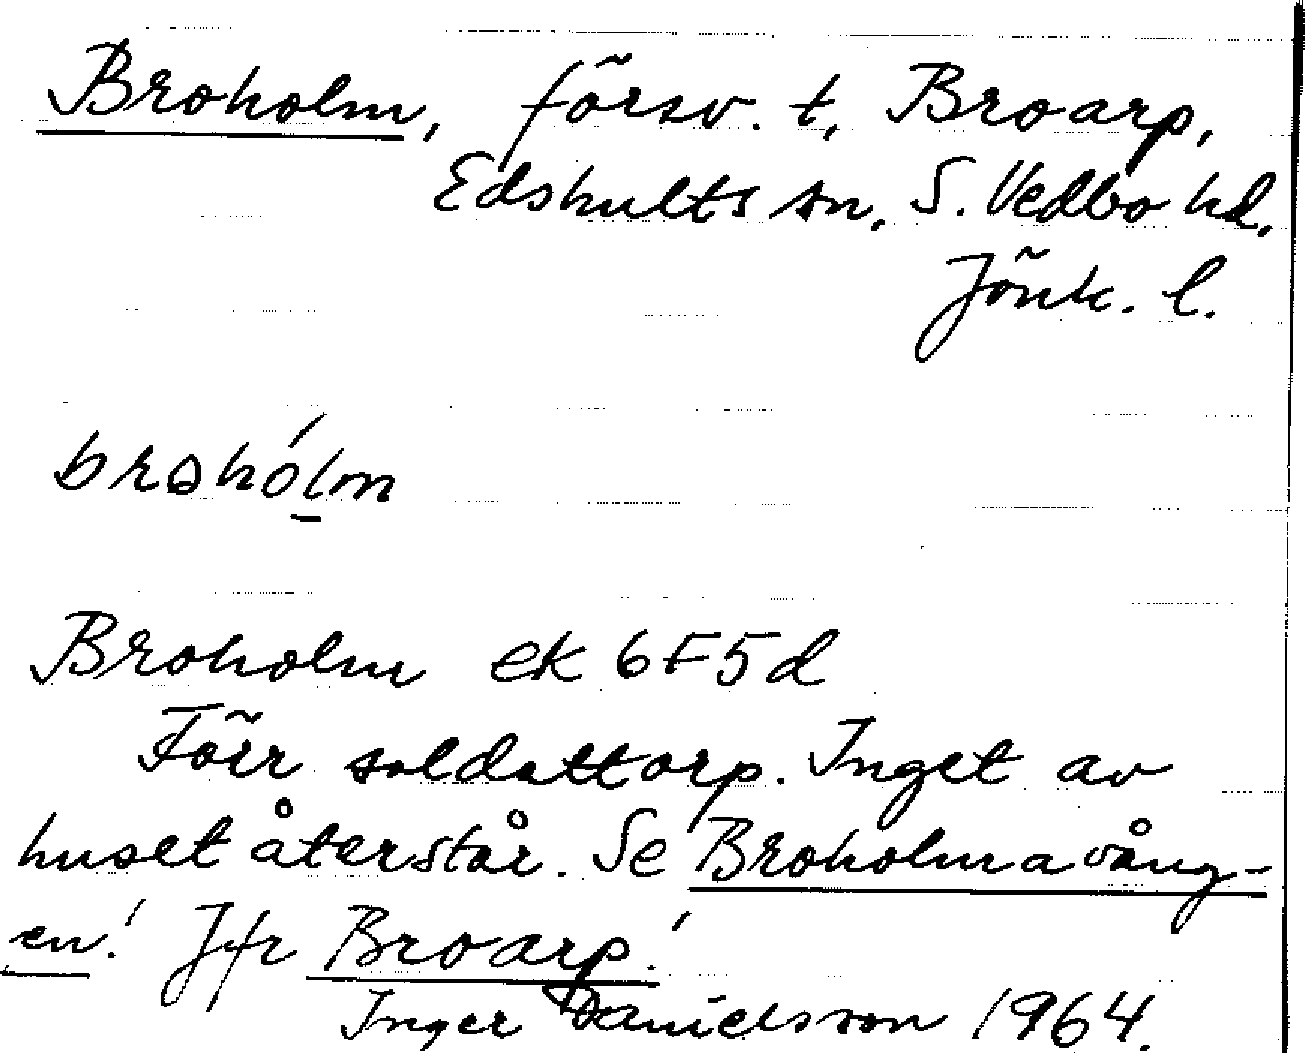 Broholm, försv. t. Broarp,
Edshults sn. S. Vedbo hd.
Jönk. l.
brohólm
Broholm ek 6F5d
Förr soldattorp. Inget av
huset återstår. Se Broholmavång-
en! Jfr Broarp!
Inger Danielsson 1964.